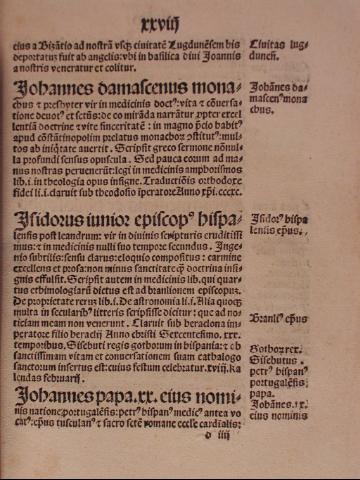 xxviij
eius a Bizātio ad nostrā vsq; ciuitatē Lugdunēsem his
deportatus fuit ab angelis: vbi in basilica diui Joannis
a nostris veneratur et colitur.
Ciuitas lug-
duneñ.
Johannes damascenus mona-
chus & presbyter vir in medicinis doctus: vita & cōuersa-
tione deuotus et sctūs: de eo mirāda narrātur propter excel
lentiā doctrine & vite sinceritatē : in magno pcio habitus
apud cōstātinopolim prelatus monachos īstituit: mul-
tos ab iniqtāte auertit. Scripsit greco sermone nōnul-
la profundi sensus opuscula. Sed pauca eorum ad ma-
nus nostras peruenerūt: legi in medicinis amphorismos
lib. i. in theologia opus insigne. Traductiōis orthodoxe
fidei li. i. claruit sub theodosio īperatore Anno xp̄i. cccc.
Johānes da-
mascenus mona
chus.
Isidorus iunior episcopus hispa-
lensis post leandrum: vir in diuinis scripturis eruditissi
mus: & in medicinis nulli suo tempore secundus. Inge-
nio subtilis: sensu clarus: eloquio compositus : carmine
excellens et prosa: non minus sanctitate q̄ doctrina insi-
gnis effulsit. Scripsit autem in medicinis lib. qui quar-
tus ethimologiarū dictus est ad branlionem episcopus.
De proprietate rerum lib. i. De astronomia li. i. Alia quoq;
multa in secularibus litteris scripsisse dicitur: que ad no-
ticiam meam non venerunt. Claruit sub heraclona im-
peratore filio heraclij Anno christi Sexcentesimo. xxx.
temporibus. Sisebuti regis gothorum in hispania: & ob
sanctissimam vitam et conuersationem suam cathalogo
sanctorum insertus est: cuius festum celebratur. xviij. ka
lendas februarij.
Isidorus hispa
lensis ep̄us.
Branlius ep̄us
Gothorum rex.
Sisebutus.
Johannes papa. xx. eius nomi-
nis natione portugaleñsis: petrus hispanus medicus antea vo
catus: ep̄us tusculanus & sacro sctē romane eccl̄e cardīalis:
petrus hispanus
portugaleñsis
papa.
Johānes. xx.
eius nominis
d iiij